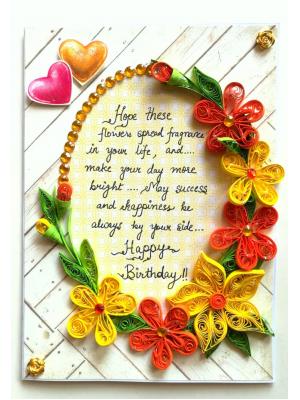 Hope these
flowers spread fragrance
in your life, and....
make your day more
bright .... May success
and happiness be
always by your side...
Happy
Birthday!!